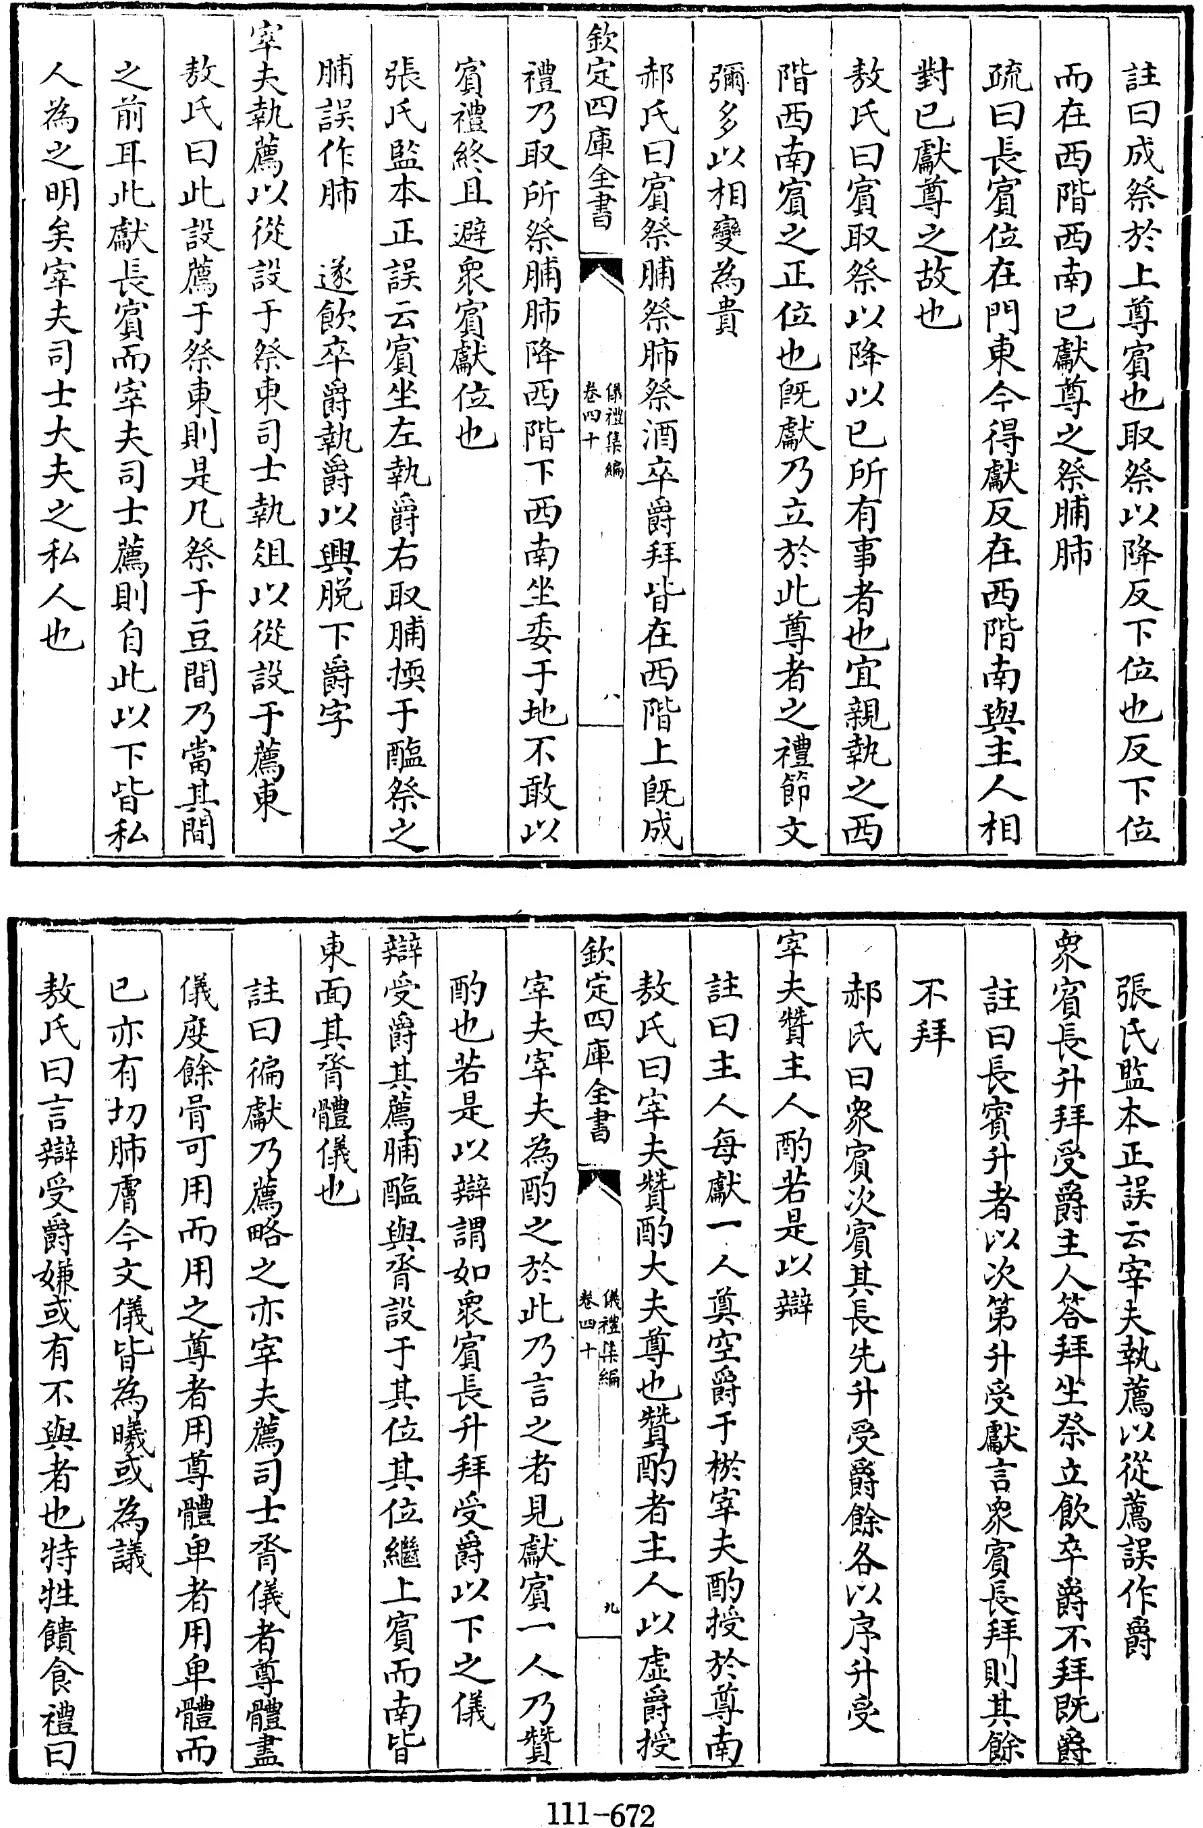 註曰成祭於上尊賔也取祭以降反下位也反下位
而在西階西南已獻尊之祭脯肺
疏曰長賔位在門東今得獻反在西階南與主人相
對已獻尊之故也
敖氏曰賔取祭以降以已所有事者也宜親執之西
階西南賔之正位也既獻乃立於此尊者之禮節文
彌多以相變為貴
郝氏曰賔祭脯祭肺祭酒卒爵拜皆在西階上既成
欽定四庫全書
儀禮集編
卷四十
八
禮乃取所祭脯肺降西階下西南坐委于地不敢以
賔禮終且避衆賔獻位也
張氏監本正誤云賔坐左執爵右取脯擩于醢祭之
脯誤作肺　遂飲卒爵執爵以興脱下爵字
宰夫執薦以從設于祭東司士執俎以從設于薦東
敖氏曰此設薦于祭東則是凡祭于豆間乃當其間
之前耳此獻長賔而宰夫司士薦則自此以下皆私
人為之明矣宰夫司士大夫之私人也
張氏監本正誤云宰夫執薦以從薦誤作爵
衆賔長升拜受爵主人答拜坐祭立飲卒爵不拜既爵
註曰長賔升者以次第升受獻言衆賔長拜則其餘
不拜
郝氏曰衆賔次賔其長先升受爵餘各以序升受
宰夫贊主人酌若是以辯
註曰主人每獻一人奠空爵于棜宰夫酌授於尊南
敖氏曰宰夫贊酌大夫尊也贊酌者主人以虛爵授
欽定四庫全書
儀禮集編
卷四十
九
宰夫宰夫為酌之於此乃言之者見獻賔一人乃贊
酌也若是以辯謂如衆賔長升拜受爵以下之儀
辯受爵其薦脯醢與脀設于其位其位繼上賔而南皆
東面其脀體儀也
註曰徧獻乃薦略之亦宰夫薦司士脀儀者尊體盡
儀度餘骨可用而用之尊者用尊體卑者用卑體而
已亦有切肺膚今文儀皆為㬢或為議
敖氏曰言辯受爵嫌或有不與者也特牲饋食禮曰
111-672